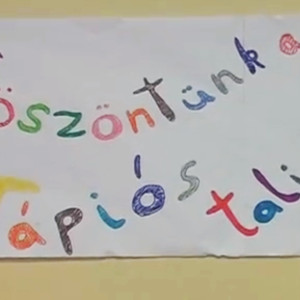 öszöntünk a
Tápiós tali